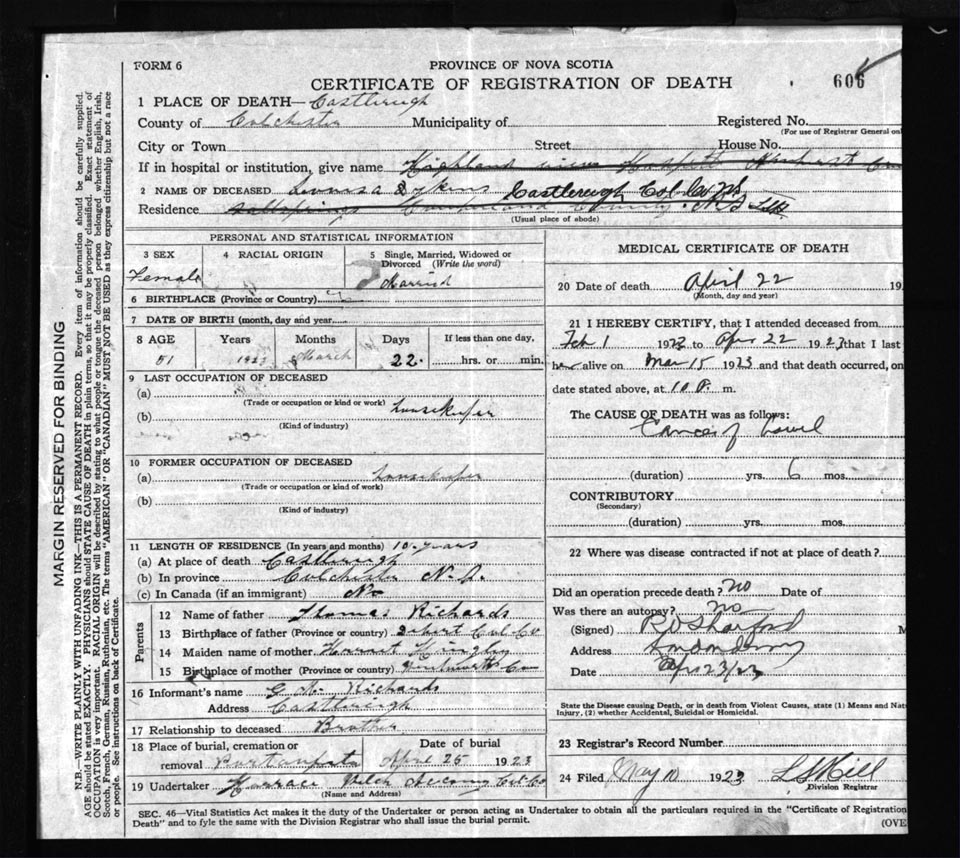 FORM 6
PROVINCE OF NOVA SCOTIA
CERTIFICATE OF REGISTRATION OF DEATH
606
1 PLACE OF DEATH— Castlereigh
County of Colchester Municipality of
Registered No.
(For use of Registrar General on
City or Town Street House No.
If in hospital or institution, give name Highland View Hospital Amherst
2 NAME OF DECEASED Louisa Castlereigh Col. Co. N.S.
Residence Cumberland County N.S.
(Usual place of abode)
PERSONAL AND STATISTICAL INFORMATION
3 SEX
Female
4 RACIAL ORIGIN
5 Single, Married, Widowed or
Divorced (Write the word)
Married
6 BIRTHPLACE (Province or Country)
7 DATE OF BIRTH (month, day and year
8 AGE Years Months Days If less than one day,
51 1923 March 22. hrs. or min.
9 LAST OCCUPATION OF DECEASED
(a)
(Trade or occupation or kind or work) housekeeper
(b)
(Kind of industry)
10 FORMER OCCUPATION OF DECEASED
(a) housekeeper
(Trade or occupation or kind of work)
(b)
(Kind of industry)
11 LENGTH OF RESIDENCE (In years and months) 10 years
(a) At place of death Castlereigh
(b) In province Colchester N.S.
(c) In Canada (if an immigrant) No
Parents
12 Name of father Thomas Richards
13 Birthplace of father (Province or country) Col Co
14 Maiden name of mother
15 Birthplace of mother (Province or country)
16 Informant's name Richards
Address Castlereigh
17 Relationship to deceased Brother
18 Place of burial, cremation or
removal
Date of burial
April 25 1923
19 Undertaker Col Co
(Name and Address)
MEDICAL CERTIFICATE OF DEATH
20 Date of death April 22 19
(Month, day and year)
21 I HEREBY CERTIFY, that I attended deceased from
Feb 1 1923 to Apr 22 1923 that I last
her alive on Mar 15 1923 and that death occurred, on
date stated above, at 10 P. m.
The CAUSE OF DEATH was as follows:
Cancer of bowel
(duration) yrs. 6 mos.
CONTRIBUTORY
(Secondary)
(duration) yrs. mos.
22 Where was disease contracted if not at place of death?
Did an operation precede death? no Date of
Was there an autopsy? no
(Signed) M
Address Londonderry
Date Apr 23/23
State the Disease causing Death, or in death from Violent Causes, state (1) Means and Nat
Injury, (2) whether Accidental, Suicidal or Homicidal.
23 Registrar's Record Number
24 Filed May 10 1923 Hill
Division Registrar
SEC. 46—Vital Statistics Act makes it the duty of the Undertaker or person acting as Undertaker to obtain all the particulars required in the "Certificate of Registration
Death" and to fyle the same with the Division Registrar who shall issue the burial permit.
(OVE
MARGIN RESERVED FOR BINDING
N.B.—WRITE PLAINLY WITH UNFADING INK—THIS IS A PERMANENT RECORD. Every item of information should be carefully supplied.
AGE should be stated EXACTLY. PHYSICIANS should STATE CAUSE OF DEATH in plain terms, so that it may be properly classified. Exact statement of
OCCUPATION is very important. RACIAL ORIGIN will be described by stating to what people or tongue the deceased person belonged whether English, Irish,
Scotch, French, German, Russian, Ruthenian, etc. The terms "AMERICAN" OR "CANADIAN" MUST NOT BE USED as they express citizenship but not a race
or people. See instructions on back of Certificate.